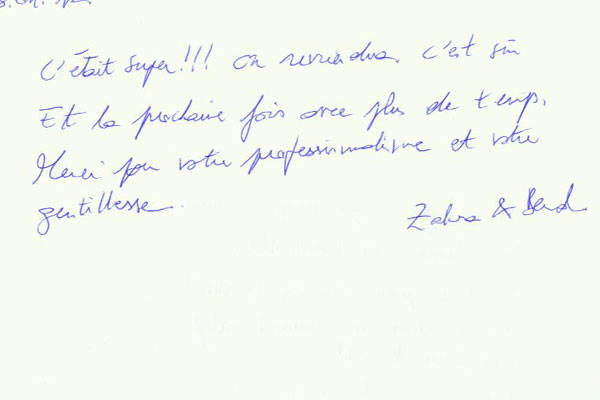 C'était super!!! On reviendra. C'est sûr
Et la prochaine fois avec plus de temps.
Merci pour votre professionnalisme et votre
gentillesse.
Zahra & Bernd